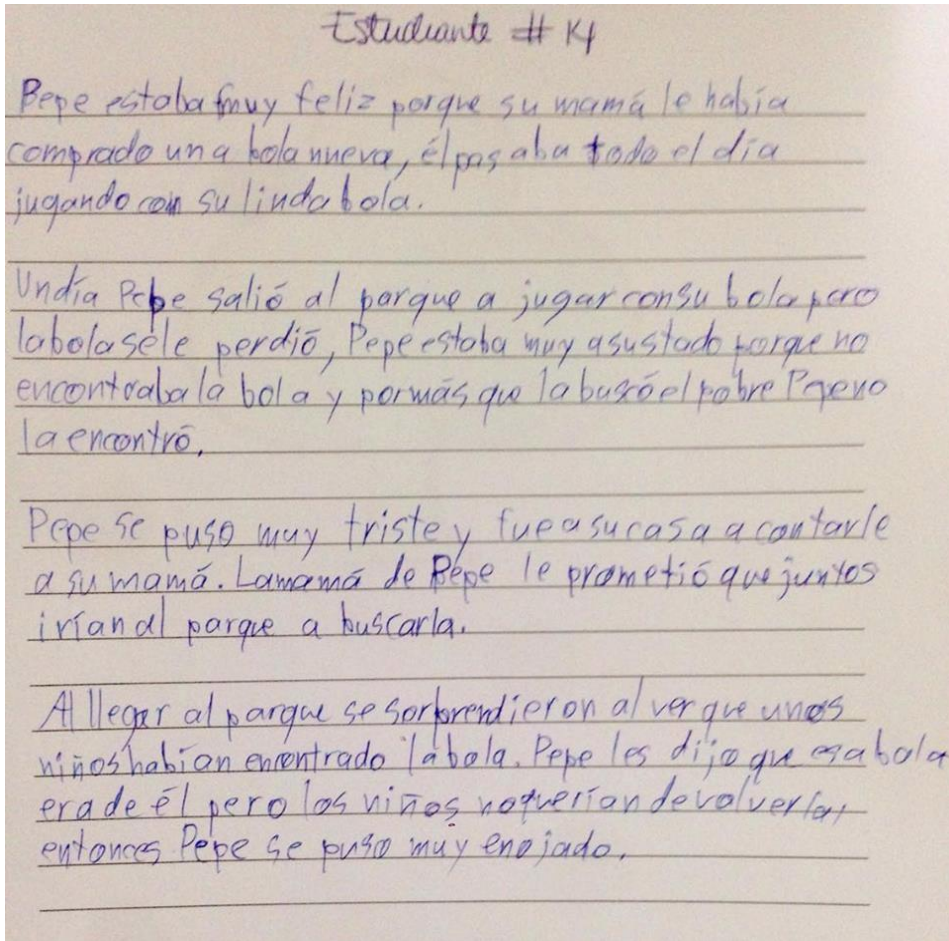 Estudiante # K4
Pepe estaba muy feliz porque su mamá le había
comprado una bola nueva, él pasaba todo el día
jugando con su linda bola.
Un día Pepe salió al parque a jugar con su bola pero
la bola se le perdió, Pepe estaba muy asustado porque no
encontraba la bola y por más que la buscó el pobre Pepe no
la encontró.
Pepe se puso muy triste y fue a su casa a contarle
a su mamá. La mamá de Pepe le prometió que juntos
irían al parque a buscarla.
Al llegar al parque se sorprendieron al ver que unos
niños habían encontrado la bola. Pepe les dijo que esa bola
era de él pero los niños no querían devolverla,
entonces Pepe se puso muy enojado.